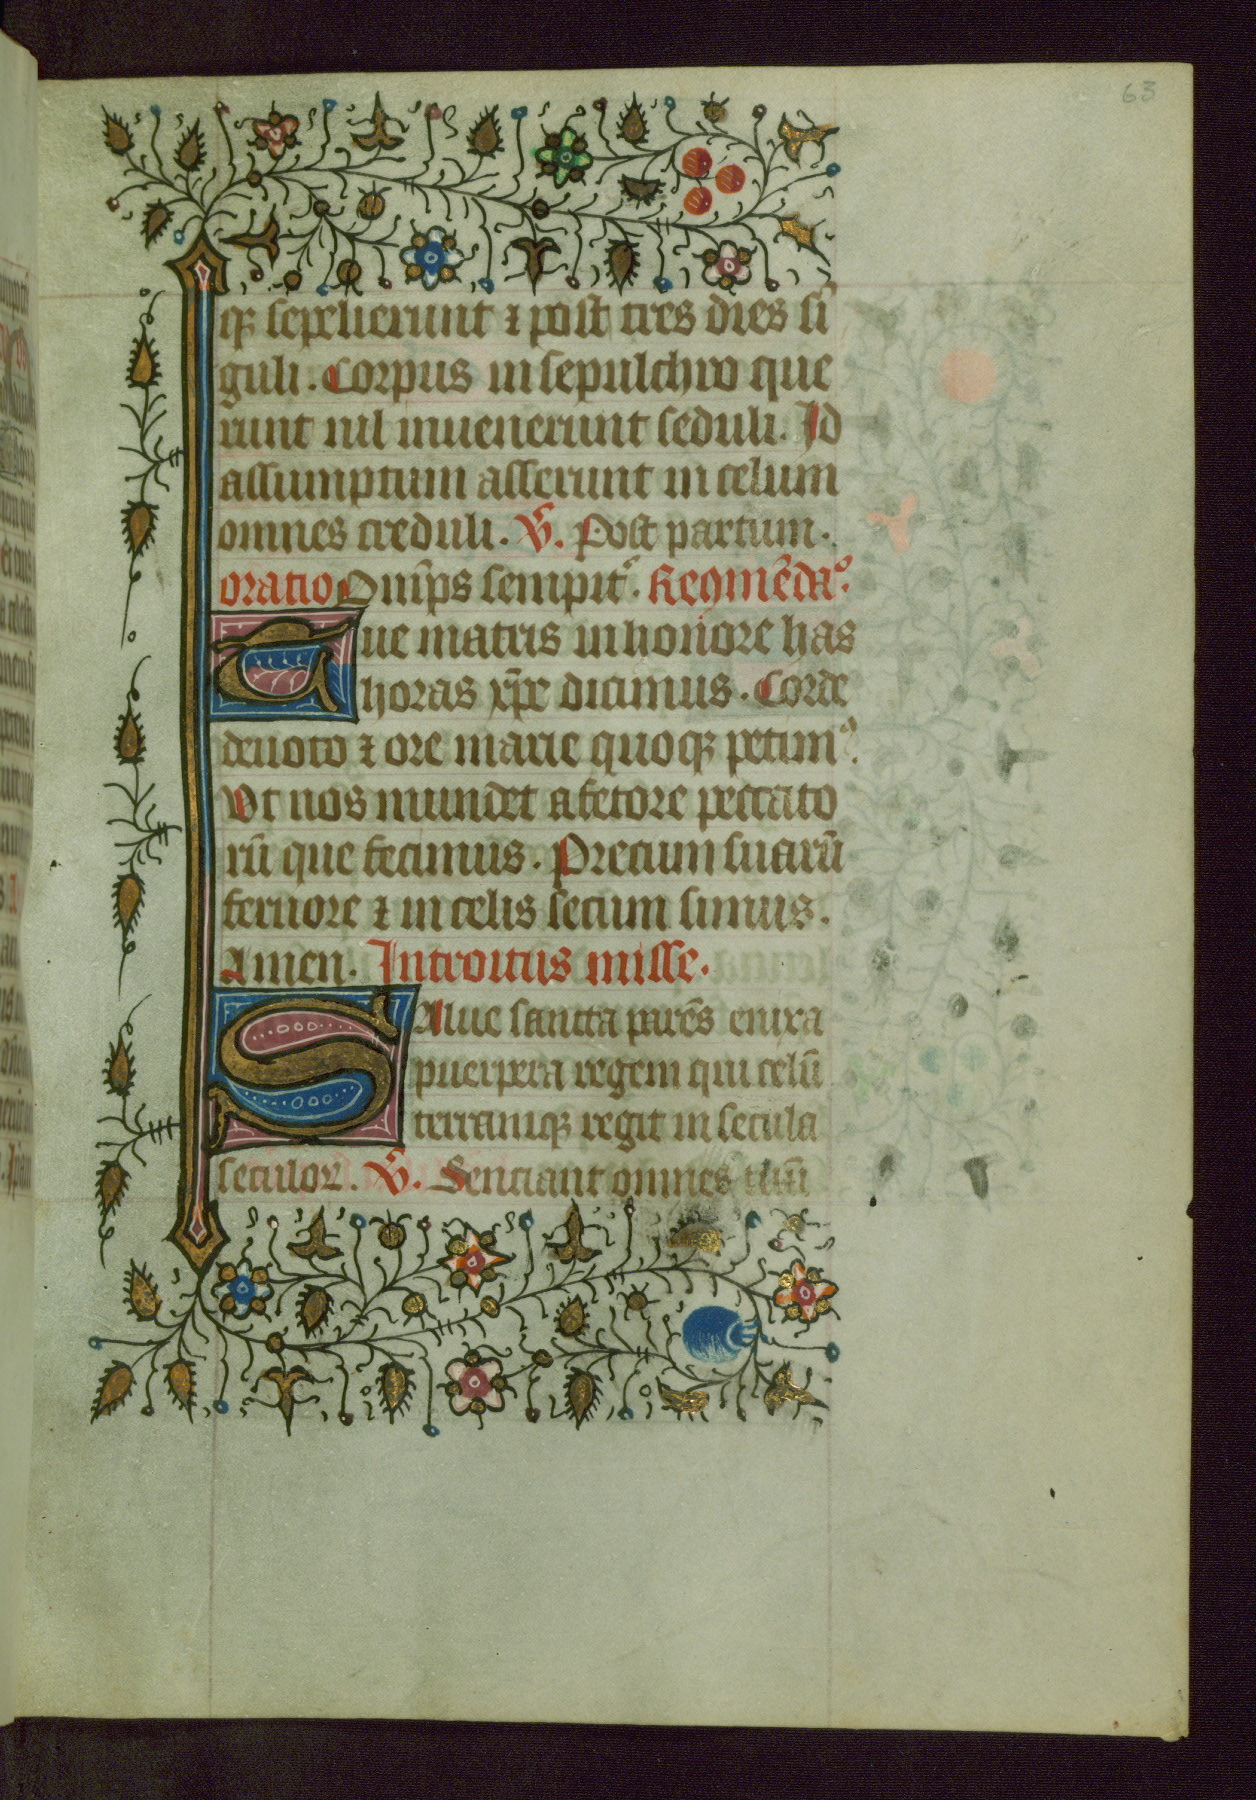 63
qꝫ sepelierunt ⁊ post tres dies sī
guli. Corpus in sepulchro que
runt nil inuenerunt seduli. Id
assumptum asserunt in celum
omnes creduli. V̄. Post partum.
oratio Om̄ps sempit᷒. Recōmēda᷒.
Tue matris in honore has
horas xp̄e dicimus. Corde
deuoto ⁊ ore marie quoqꝫ petim᷒.
Vt nos mundet a fetore peccato
rū que fecimus. Precum suarū
feruore ⁊ in celis secum simus.
Amen. Introitus misse.
Salue sancta parēs enixa
puerpera regem qui celū
terramqꝫ regit in secula
seculoꝝ. V̄. Senciant omnes tuū